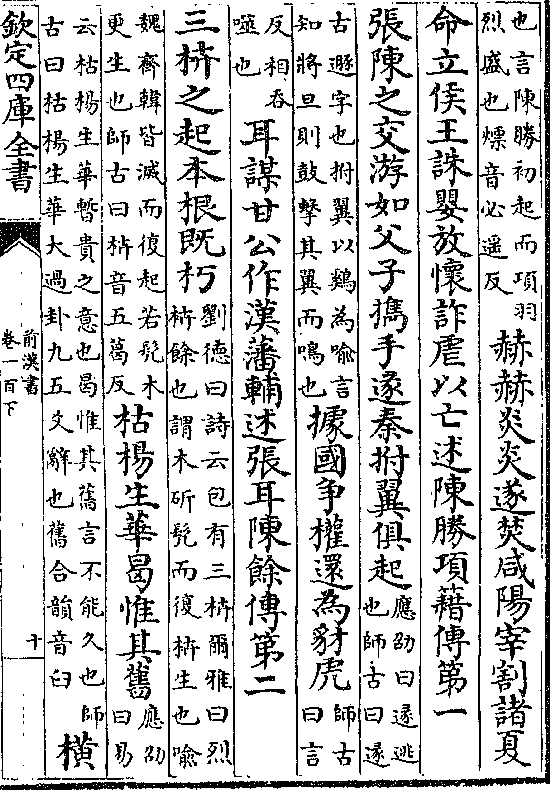 也言陳勝初起而項羽
烈盛也熛音必遥反
赫赫炎炎遂焚咸陽宰割諸夏
命立侯王誅嬰放懷詐虐以亡述陳勝項籍傳第一
張陳之交游如父子攜手遂秦拊翼俱起
應劭曰遂逃
也師古曰遂
古遯字也拊翼以鷄為喻言
知將旦則鼓擊其翼而鳴也
據國争權還為豺虎
師古
曰言
反相吞
噬也
耳謀甘公作漢藩輔述張耳陳餘傳第二
三枿之起本根既朽
劉德曰詩云包有三枿爾雅曰烈
枿餘也謂木斫髠而復枿生也喻
魏齊韓皆滅而復起若髠木
更生也師古曰枿音五葛反
枯楊生華曷惟其舊
應劭
曰易
云枯楊生華暫貴之意也曷惟其舊言不能久也師
古曰枯楊生華大過卦九五爻辭也舊合韻音臼
橫
欽定四庫全書
前漢書
卷一百下
十